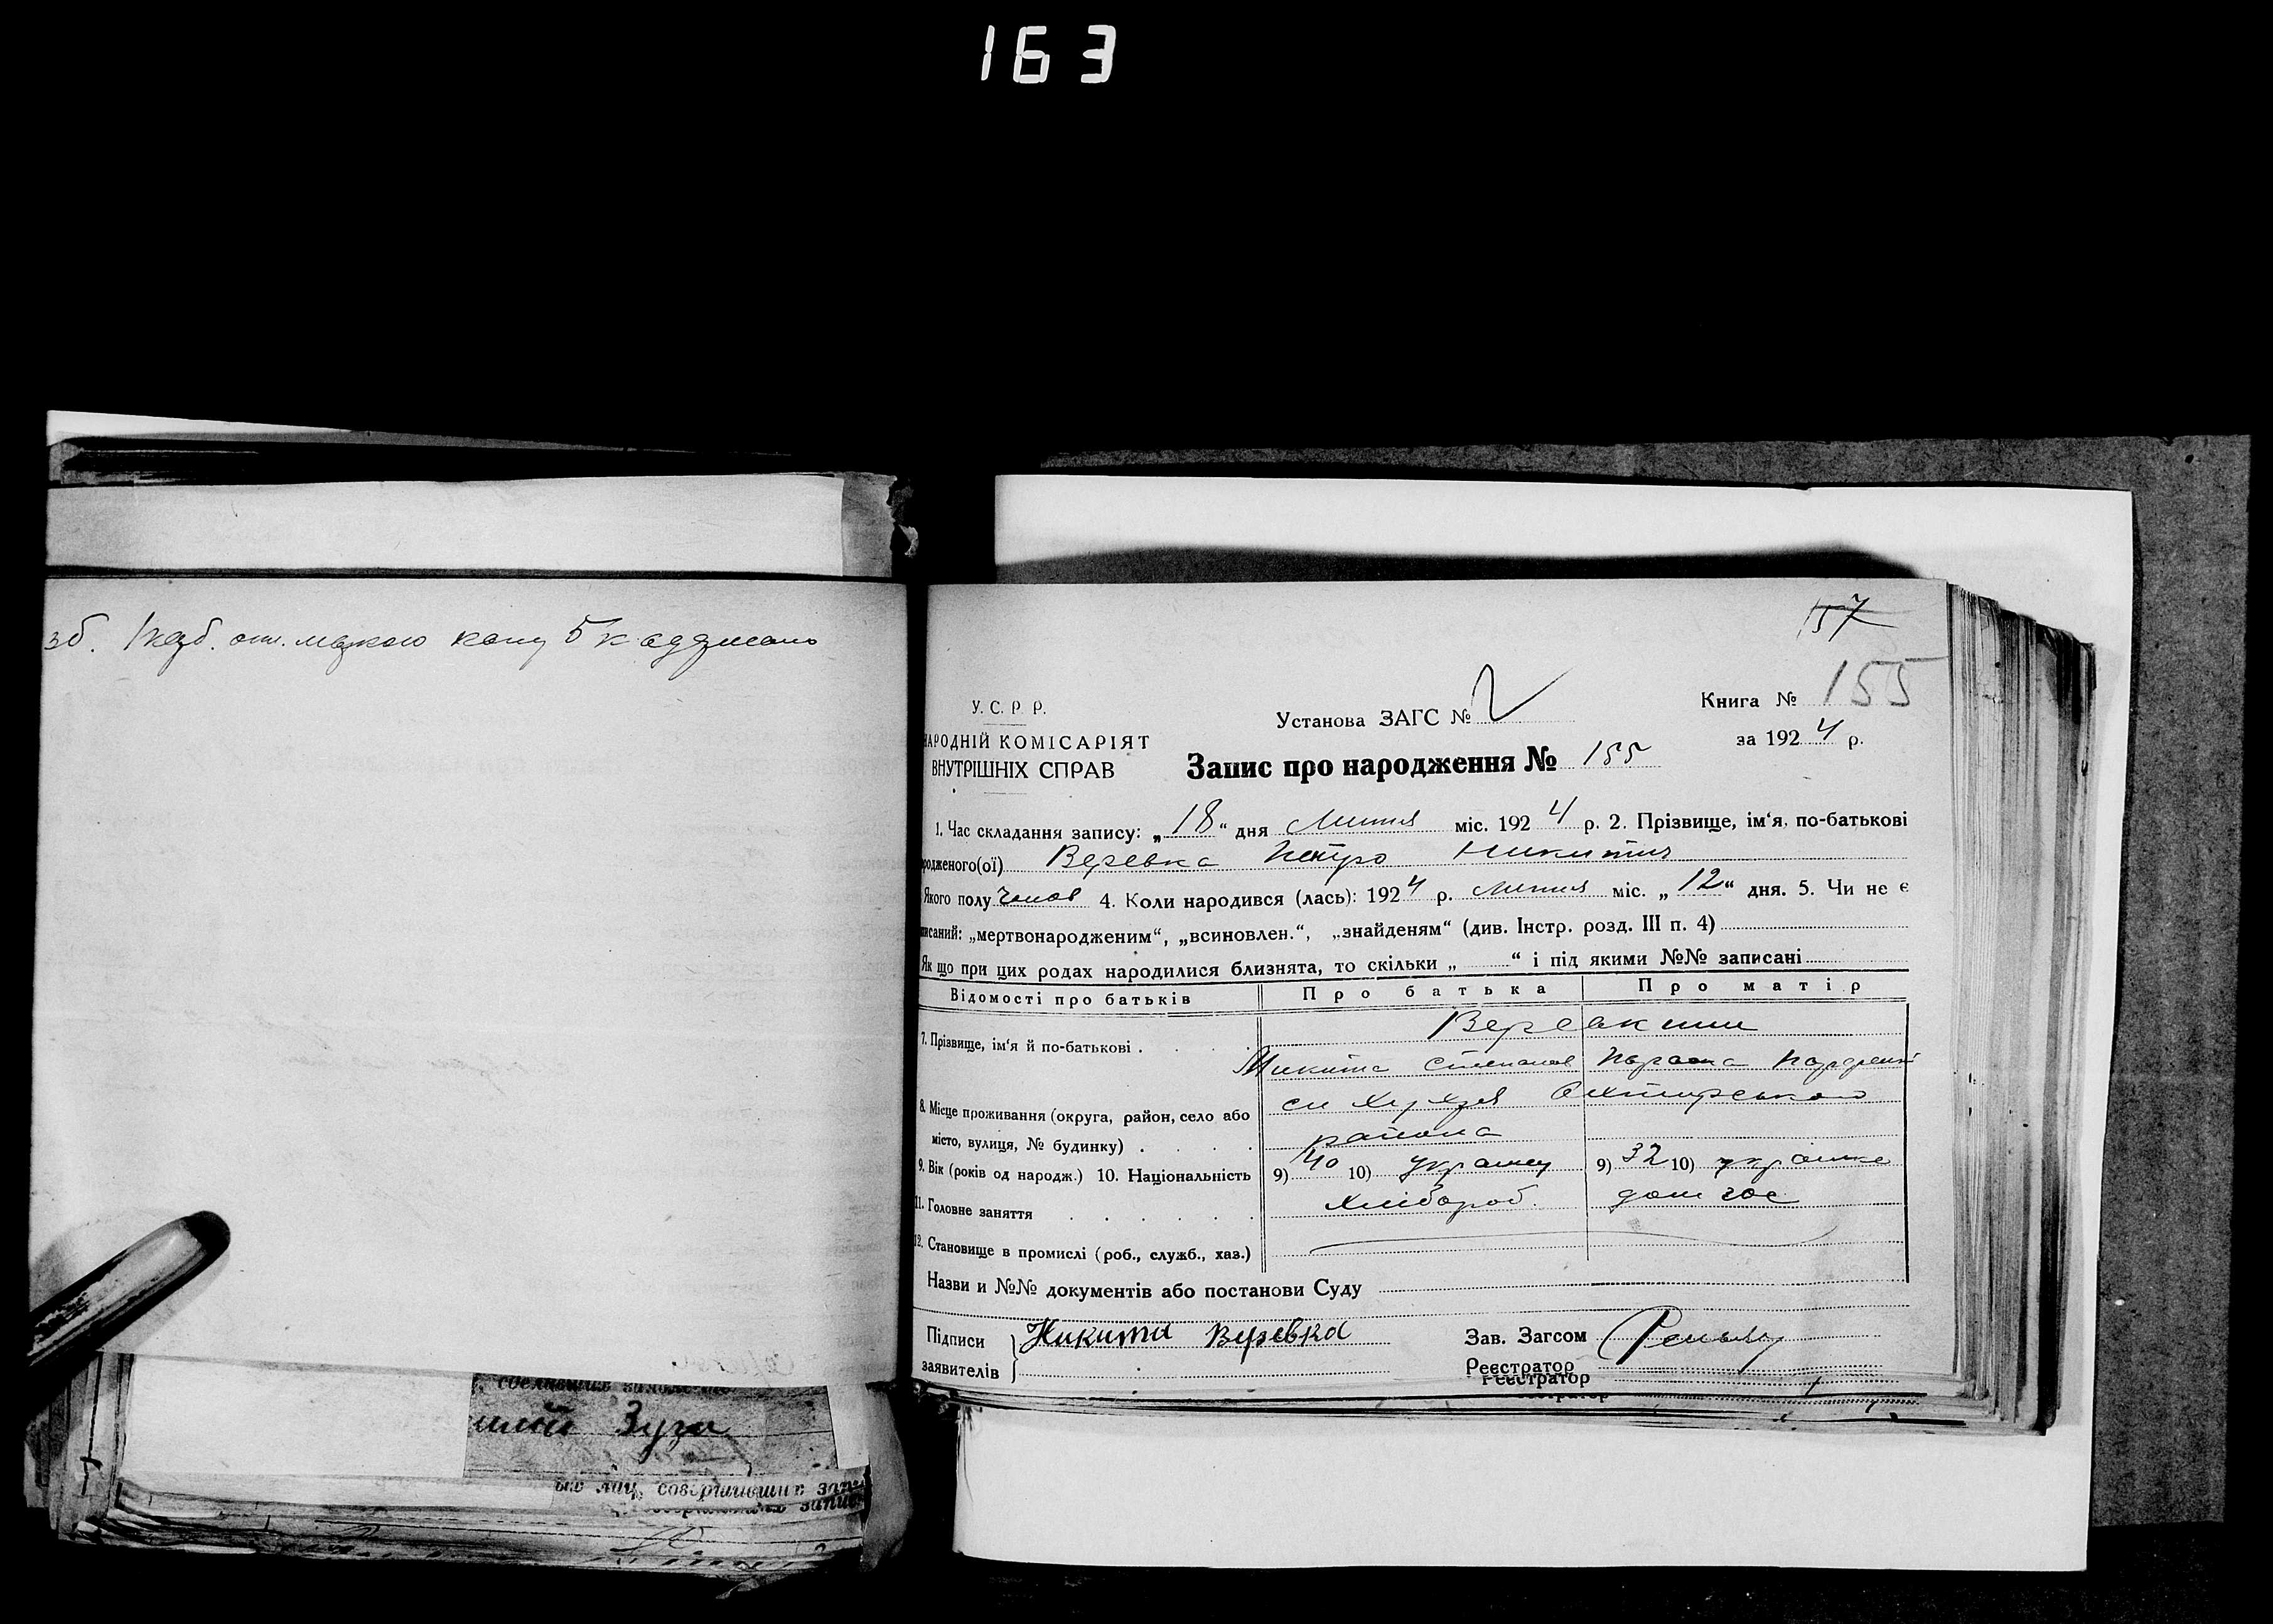 163
зб.
5 к
157
У. С. Р. Р.
Установа ЗАГС № 2
Книга № 155
НАРОДНІЙ КОМІСАРІЯТ
за 1924 р.
ВНУТРІШНІХ СПРАВ
Запис про народження № 155
1. Час складання запису: „18“ дня Липня міс. 1924 р. 2. Прізвище, ім‘я, по-батькові
родженого(ої) Веревка Петро Никитич
Якого полу чолов 4. Коли народився (лась): 1924 р. липня міс. „12“ дня. 5. Чи не є
писаний: „мертвонародженим“, „всиновлен.“, „знайденям“ (див. Інстр. розд. III п. 4)
Як що при цих родах народилися близнята, то скільки „ “ і під якими №№ записані
Відомості про батьків Про батька Про матір
Веревкини
7. Прізвище, ім‘я й по-батькові .
Микита Степанов Параска
8. Місце проживання (округа, район, село або
сл Охтирського
місто, вулиця, № будинку) . района
9. Вік (років од народж.) 10. Національність 9) 40 10) украинец 9) 32 10) украинка
11. Головне заняття Хлібороб. дом гос
12. Становище в промислі (роб., служб., хаз.)
Назви и №№ документів або постанови Суду
Підписи Никита Веревка Зав. Загсом
заявителів Реєстратор
Реєстратор
Зуги
ых лиц, совершивших запи